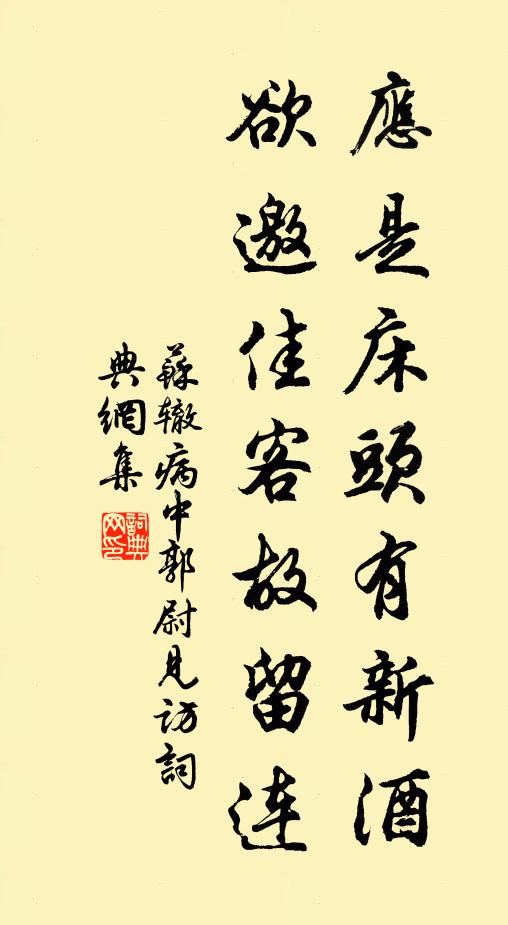 應是床頭有新酒
欲邀佳客故留連
蘇辙病中郭尉見訪詞
典網集
詞典网印